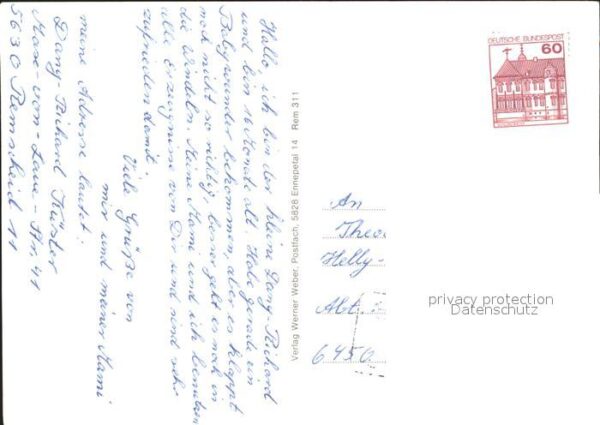 Hallo, ich bin der kleine Dany-Richard
und bin 16 Monate alt. Habe gerade ein
Babywunder bekommen, aber es klappt
noch nicht so richtig, besser geht es noch in
die Windeln. Meine Mami und ich benutzen
alle Erzeugnisse von Dir und sind sehr
zufrieden damit.
Viele Grüße von
mir und meiner Mami
meine Adresse lautet:
Dany-Richard Küster
Max-von-Laue-Str. 41
5630 Remscheid 11
Verlag Werner Weber, Postfach, 5828 Ennepetal 14 Rem 311
DEUTSCHE BUNDESPOST
60
An
Theo
Helly-
Abt.
6450
privacy protection
Datenschutz